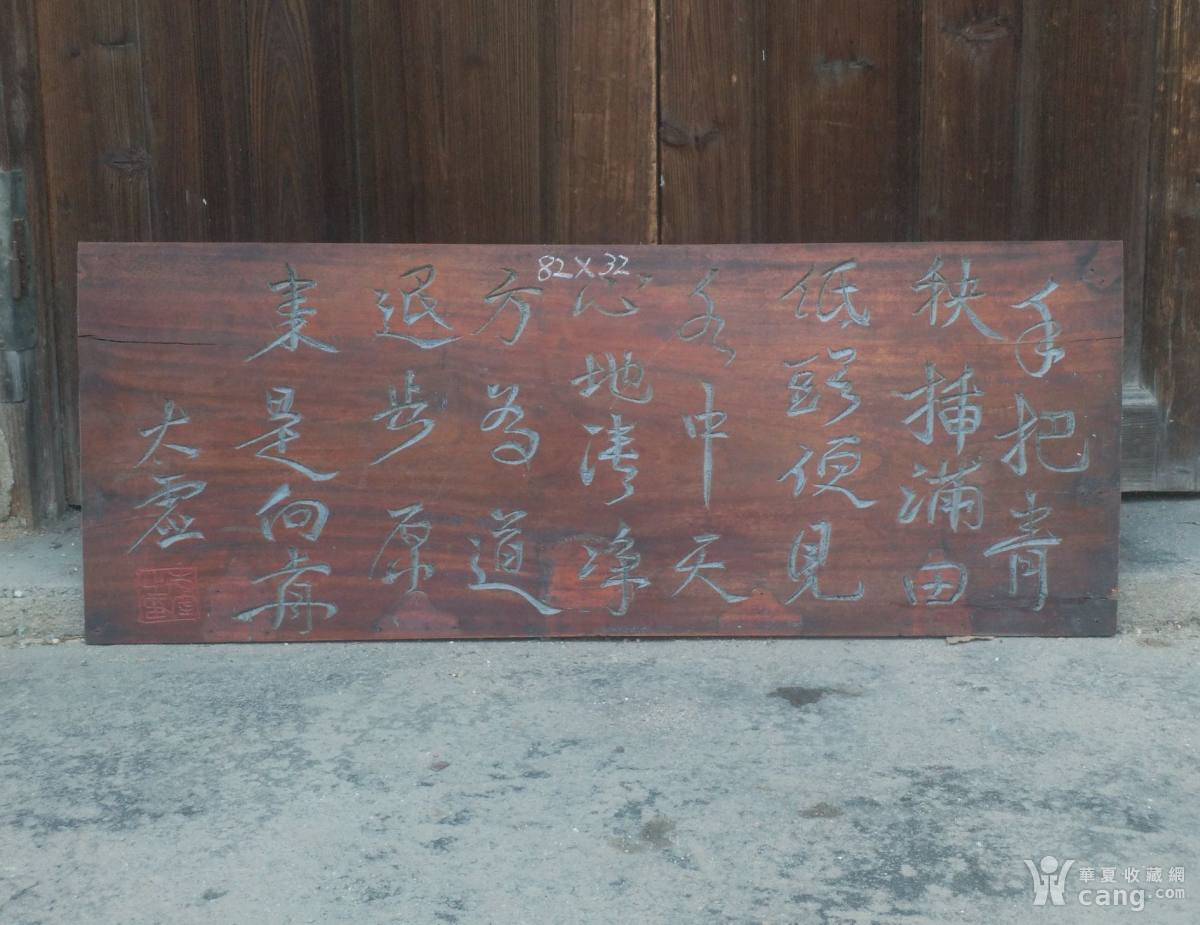 82×32
手把青
秧插滿田
低頭便見
水中天
心地清淨
方為道
退步原
来是向前
太虛
華夏收藏網
cang.com